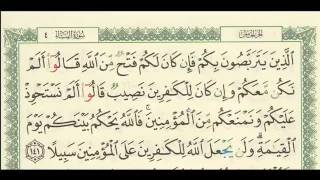 الجزء الخامس سورة النساء ٤
ٱلَّذِينَ يَتَرَبَّصُونَ بِكُمْ فَإِن كَانَ لَكُمْ فَتْحٌ مِّنَ ٱللَّهِ قَالُوٓا۟ أَلَمْ
نَكُن مَّعَكُمْ وَإِن كَانَ لِلْكَٰفِرِينَ نَصِيبٌ قَالُوٓا۟ أَلَمْ نَسْتَحْوِذْ
عَلَيْكُمْ وَنَمْنَعْكُم مِّنَ ٱلْمُؤْمِنِينَ ۚ فَٱللَّهُ يَحْكُمُ بَيْنَكُمْ يَوْمَ
ٱلْقِيَٰمَةِ ۗ وَلَن يَجْعَلَ ٱللَّهُ لِلْكَٰفِرِينَ عَلَى ٱلْمُؤْمِنِينَ سَبِيلًا ١٤١